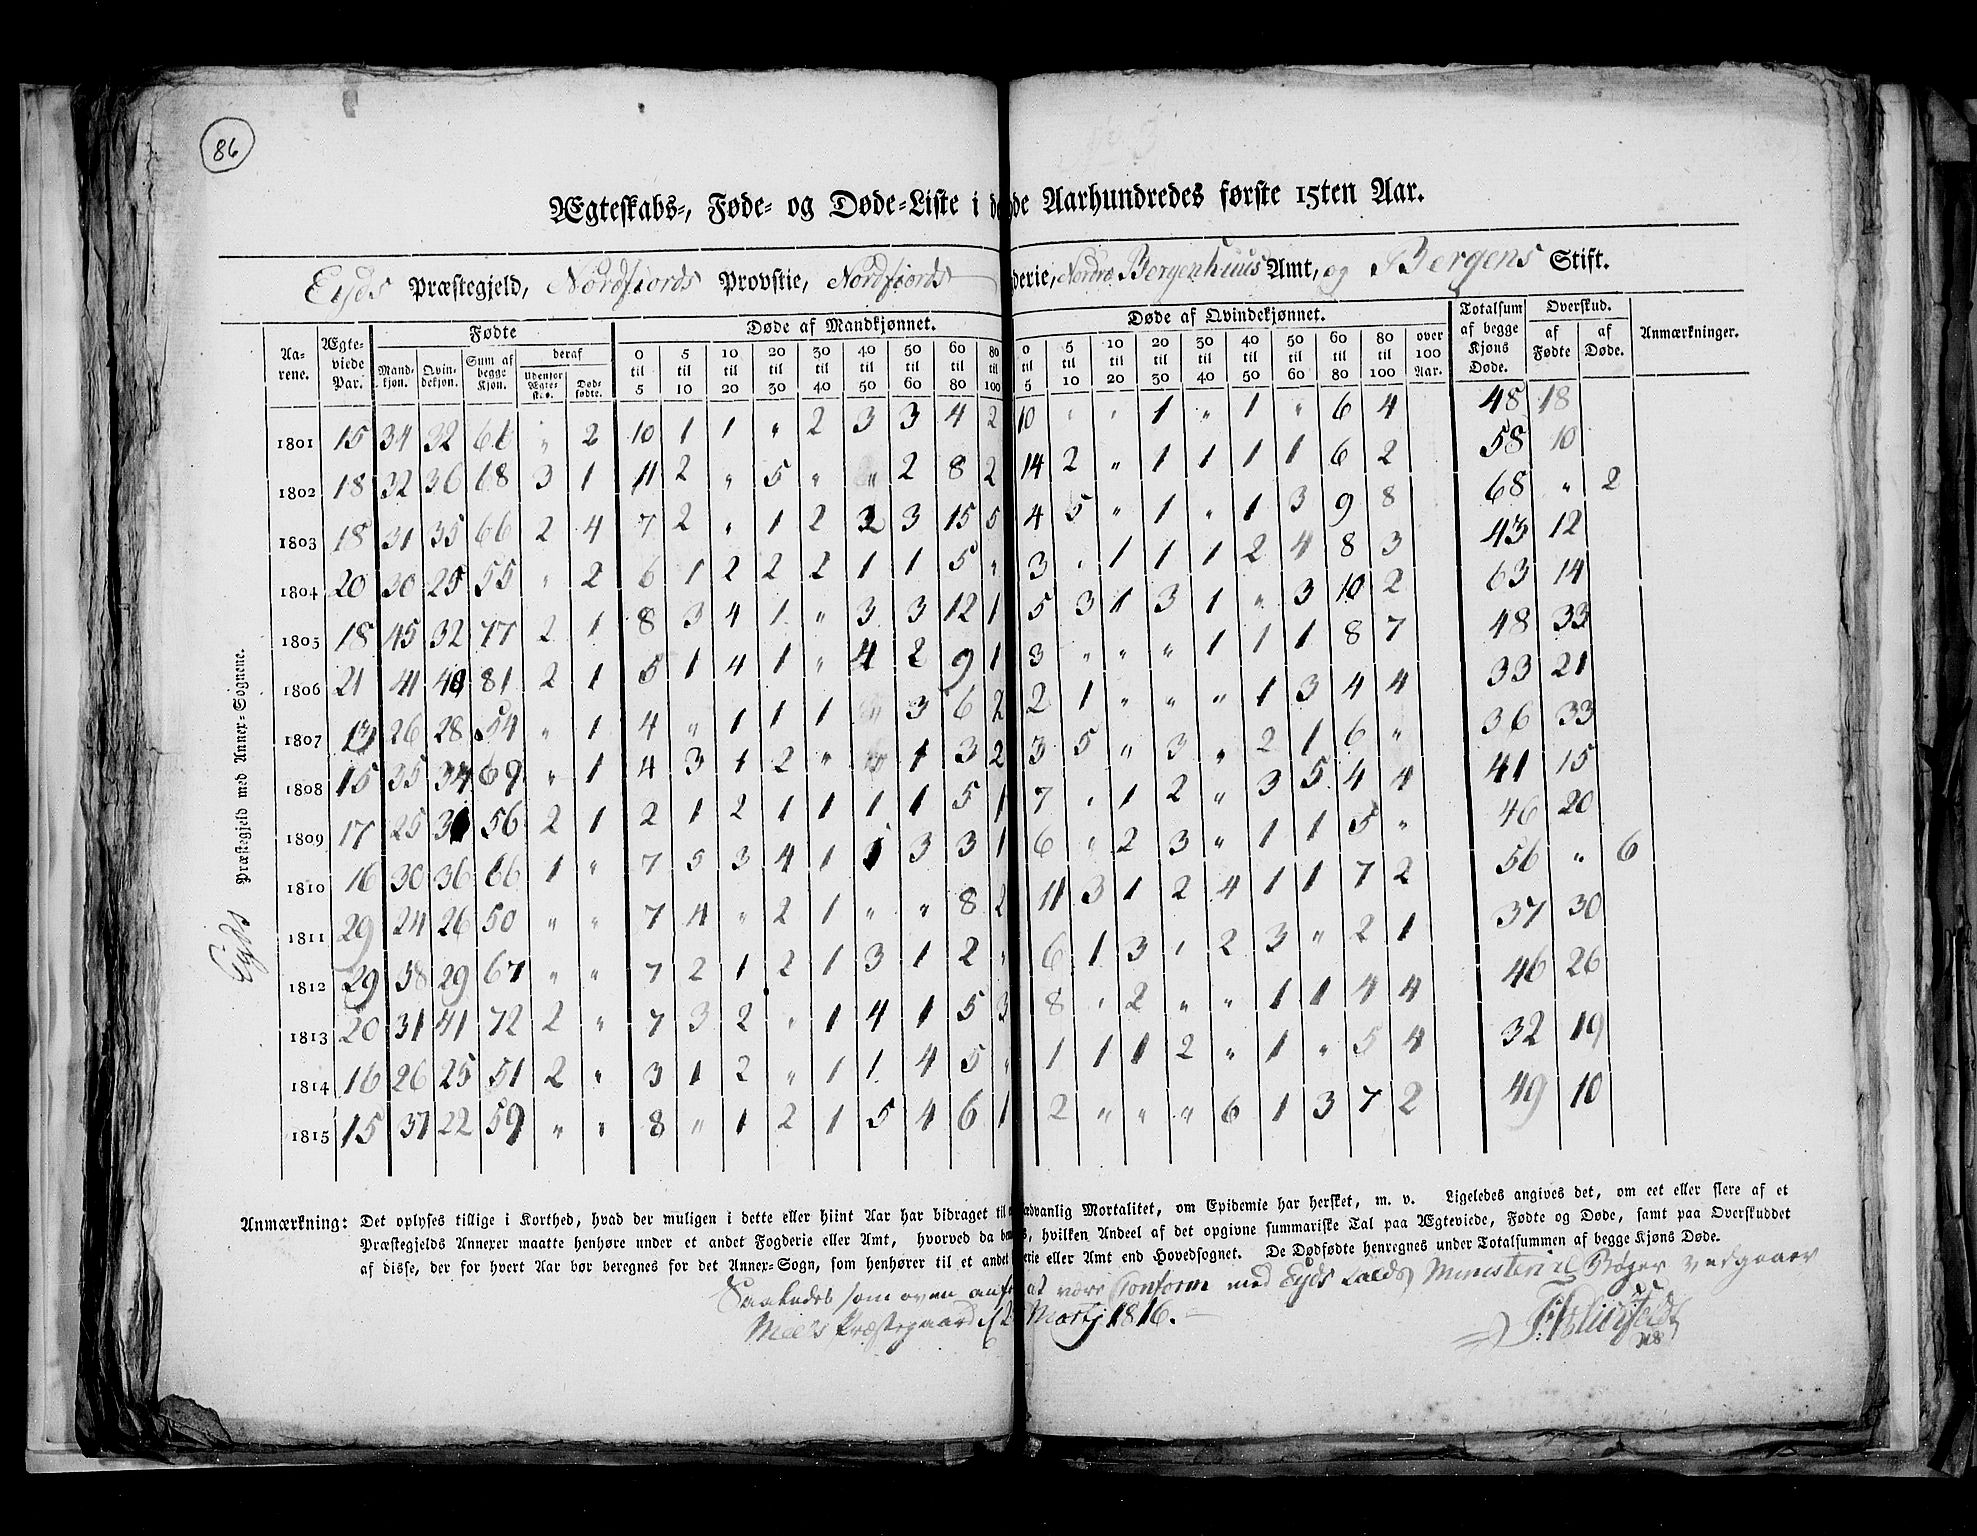 86
Ægteskabs-, Føde- og Døde-Liste i de de Aarhundredes første 15ten Aar.
Eyds Præstegjeld, Nordfiords Provstie, Nordfiords derie, Nordre Bergenhuus Amt, og Bergens Stift.
Præstegjeld med Annex-Sognene. Eyds
Aarene. | Ægteviede Par. | Fødte | Døde af Mandkjønnet. | Døde af Qvindekjønnet. | Totalsum af begge Kjøns Døde. | Overskud. | Anmærkninger.
Mandkjøn. | Qvindekjøn. | Sum af begge Kjøn. | deraf | Udenfor Ægtesk. | Dødfødte. | 0 til 5 | 5 til 10 | 10 til 20 | 20 til 30 | 30 til 40 | 40 til 50 | 50 til 60 | 60 til 80 | 80 til 100 | 0 til 5 | 5 til 10 | 10 til 20 | 20 til 30 | 30 til 40 | 40 til 50 | 50 til 60 | 60 til 80 | 80 til 100 | over 100 Aar. | af Fødte | af Døde.
1801 15 34 32 66 " 2 10 1 1 " 2 3 3 4 2 10 " " 1 " 1 " 6 4 48 18
1802 18 32 36 68 3 1 11 2 " 5 " " 2 8 2 14 2 " 1 1 1 1 6 2 58 10
1803 18 31 35 66 2 4 7 2 " 1 2 2 3 15 5 4 5 " 1 " 1 3 9 8 68 " 2
1804 20 30 25 55 " 2 6 1 2 2 2 1 1 5 " 3 " 1 1 1 2 4 8 3 43 12
1805 18 45 32 77 2 1 8 3 4 1 " 3 3 12 1 5 3 1 3 1 " 3 10 2 63 14
1806 21 41 40 81 2 1 5 1 4 1 " 4 2 9 1 3 " " " 1 1 1 8 7 48 33
1807 13 26 28 54 " 1 4 " 1 1 1 " 3 6 2 2 1 " " " 1 3 4 4 33 21
1808 15 35 34 69 " 1 4 3 1 2 " " 1 3 2 3 5 " 3 " 2 1 6 " 36 33
1809 17 25 31 56 2 1 2 1 2 1 1 1 1 5 1 7 " 1 2 " 3 5 4 4 41 15
1810 16 30 36 66 1 " 7 5 3 4 1 1 3 3 1 6 " 2 3 " 1 1 5 " 46 20
1811 29 24 26 50 " " 7 4 " 2 1 " " 8 2 11 3 1 2 4 1 1 7 2 56 " 6
1812 29 38 29 67 " " 7 2 1 2 1 3 1 2 " 6 1 3 1 2 3 " 2 1 37 30
1813 20 31 41 72 2 " 7 3 2 " 1 4 1 5 3 8 " 2 " " 1 1 4 4 46 26
1814 16 26 25 51 2 " 3 1 2 " 1 1 4 5 " 1 1 1 2 " 1 " 5 4 32 19
1815 15 37 22 59 " " 8 " 1 2 1 5 4 6 1 2 " " " 6 1 3 7 2 49 10
Anmærkning: Det oplyses tillige i Korthed, hvad der muligen i dette eller hiint Aar har bidraget til ædvanlig Mortalitet, om Epidemie har hersket, m. v. Ligeledes angives det, om eet eller flere af et
Præstegjelds Annexer maatte henhøre under et andet Fogderie eller Amt, hvorved da be s, hvilken Andeel af det opgivne summariske Tal paa Ægteviede, Fødte og Døde, samt paa Overskuddet
af disse, der for hvert Aar bør beregnes for det Annex-Sogn, som henhører til et andet erie eller Amt end Hovedsognet. De Dødfødte henregnes under Totalsummen af begge Kjøns Døde.
Saaledes som oven anf at være Conform med Eyds Kalds Ministerial Bøger vedgaaer
Præstegaard Martj 1816.